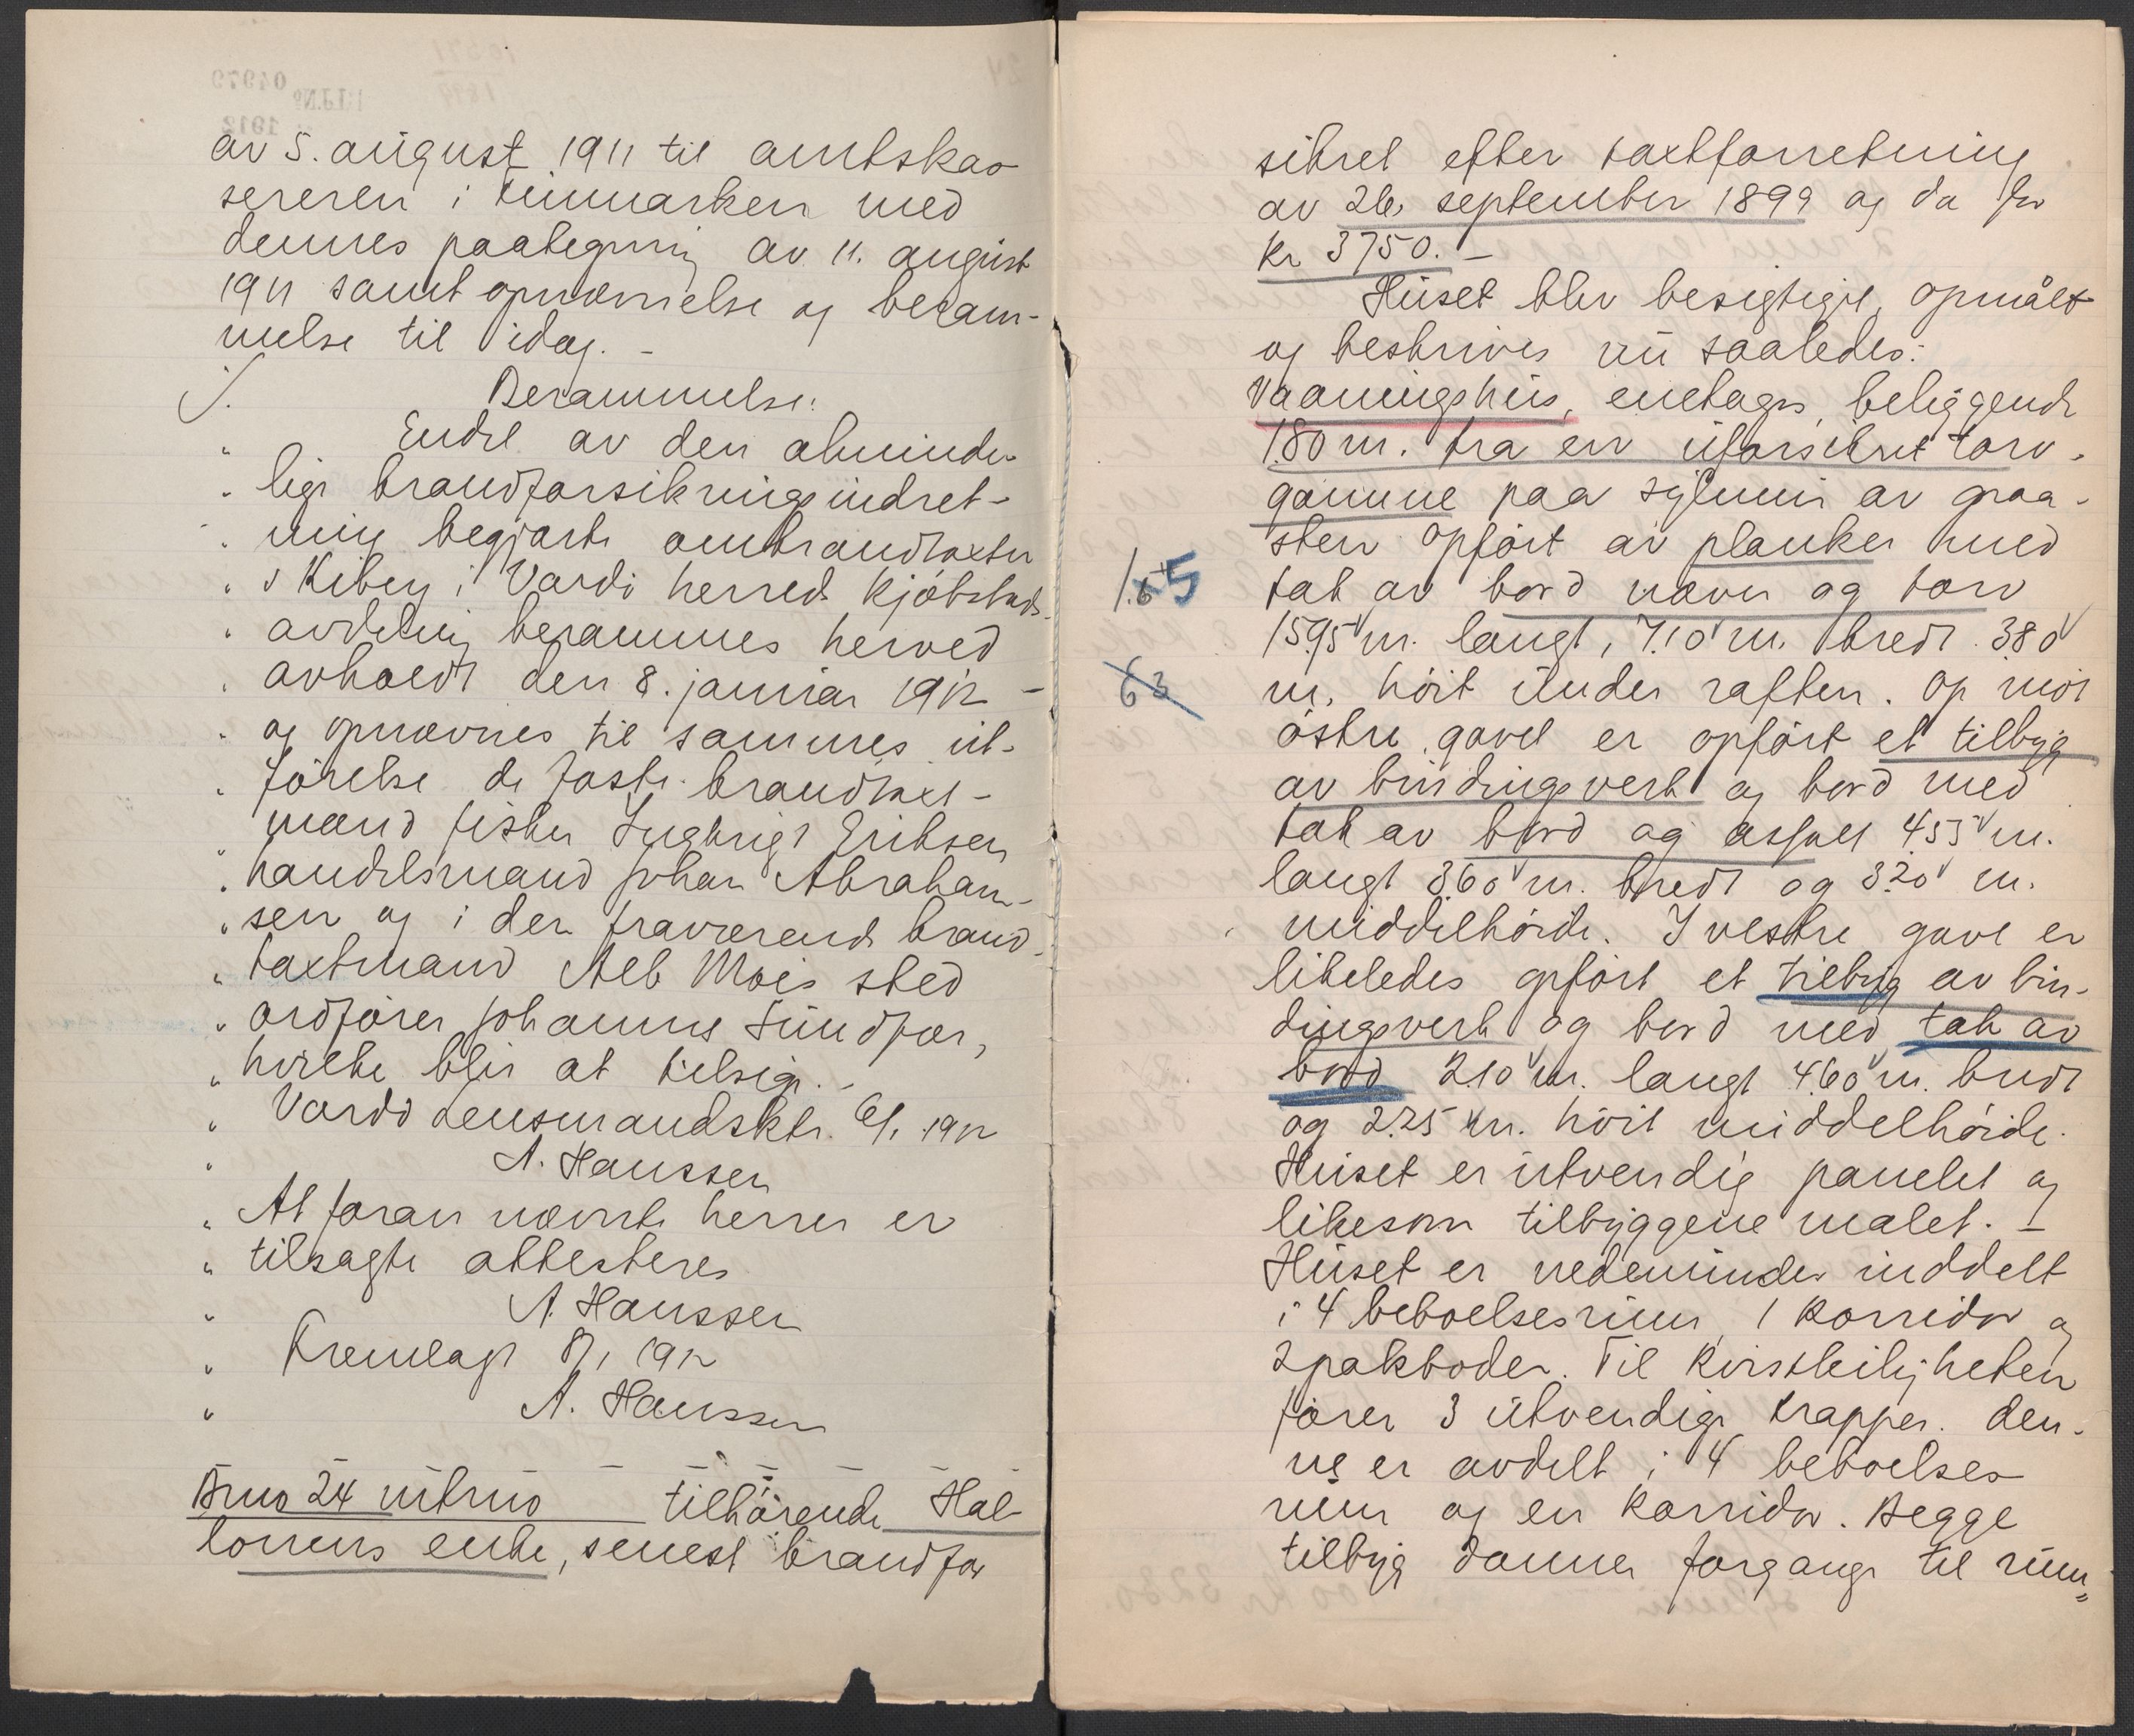 av 5. august 1911 til amtskas
sereren i Finmarken med
dennes paategning av 11. august
1911 samt opnævnelse og beram-
melse til idag. -
S. Berammelse:
" Endel av den alminde-
" lige brandforsikringsindret-
" ning begjærte ombrandtaxter
" i Kiberg i Vardö herreds kjöbstads-
" avdeling berammes herved
" avholdt den 8. januar 1912 -
" og opnævnes til sammes ut-
" förelse de faste brandtaxt-
" mænd fisker Ingbrigt Eriksen
" handelsmand Johan Abraham-
" sen og i den fraværende brand-
" taxtmand Alb Mois sted
" ordförer Johannes Sundfær,
" hvilke blir at tilsige. -
" Vardö Lensmandsktr. 6/1 1912
" A. Hanssen
" At foran nævnte herrer er
" tilsagte attesteres
" A. Hanssen
" Fremlagt 8/1 1912
" A. Hanssen
Bruo 24 tilhörende Hal-
lorens enke, senest brandfor
sikret efter taxtforretning
av 26. september 1899 og da for
Kr 3750. -
Huset blev besigtiget, opmålt
og beskrives nu saaledes:
Vaaningshus, enetages, beliggende
1.80 m. fra en uforsikret torv-
gamme paa sylmur av graa-
sten opfört av planker med
1.6 5 tak av bord næver og torv
15.95 m. langt, 7.10 m. bredt 3.80
63 m. höit under raften. Op mot
östre gavel er opfört et tilbyg
av bindingsverk og bord med
tak av bord og asfalt 4.55 m.
langt 3.60 m. bredt og 3.20 m.
middelhöide. I vestre gavl er
likeledes opfört et tilbyg av bin-
dingsverk og bord med tak av
bord 2.10 m. langt 4.60 m. bredt
og 2.25 m. höit middelhöide.
Huset er utvendig panelet og
likesom tilbyggene malet. -
Huset er nedenunder inddelt
i 4 beboelsesrum, 1 korridor og
2 pakboder. Til Kvistleiligheten
förer 3 utvendige trapper. den-
ne er avdelt i 4 beboelses
rum og en korridor. Begge
tilbyg danner forgange til rum-